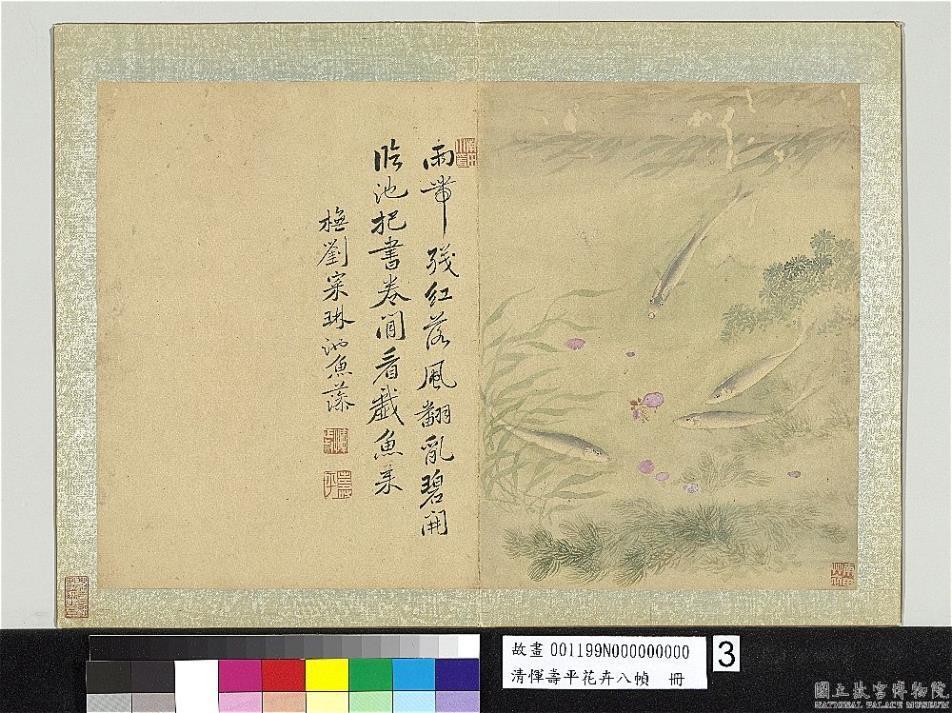 雨帶殘紅落風翻亂碧開
臨池把書卷閒看戲魚來
橅劉寀琳池魚藻
故畫 001199N000000000
清惲壽平花卉八幀 冊
3
國立故宮博物院
NATIONAL PALACE MUSEUM